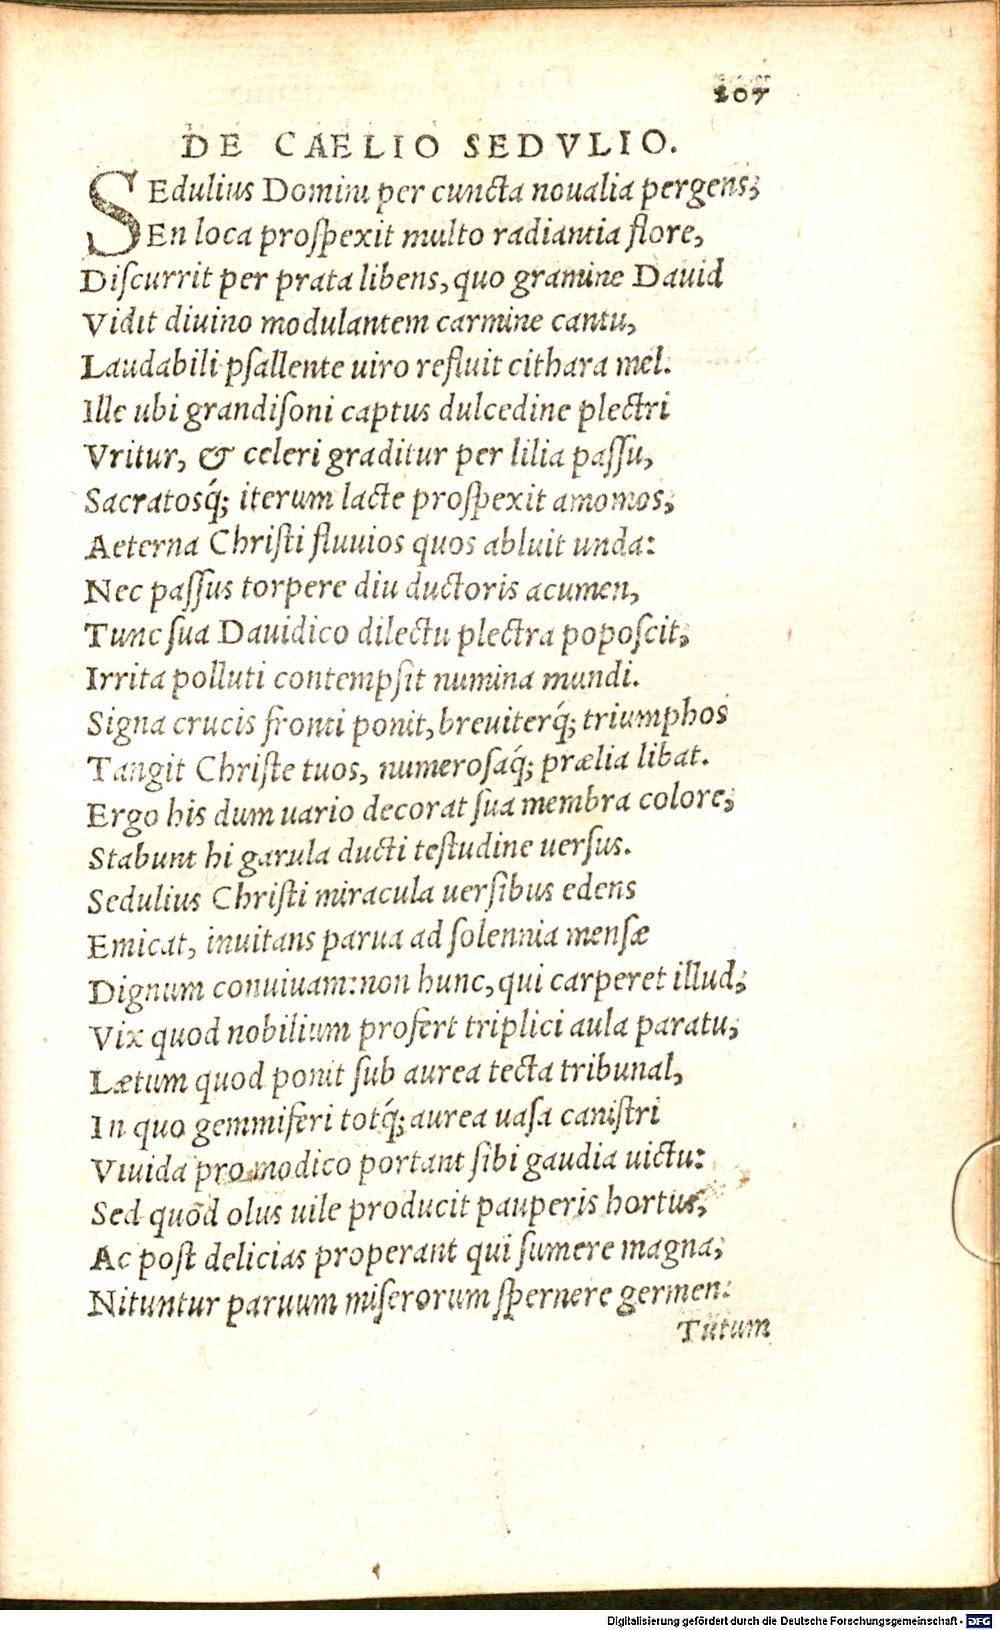 207
DE CAELIO SEDVLIO.
SEdulius Domini per cuncta noualia pergens;
En loca proſpexit multo radiantia flore,
Diſcurrit per prata libens, quo gramine Dauid
Vidit diuino modulantem carmine cantu,
Laudabili pſallente uiro refluit cithara mel.
Ille ubi grandiſoni captus dulcedine plectri
Vritur, & celeri graditur per lilia paſſu,
Sacratosq́; iterum lacte proſpexit amomos;
Aeterna Chriſti fluuios quos abluit unda:
Nec paſſus torpere diu ductoris acumen,
Tunc ſua Dauidico dilectu plectra popoſcit;
Irrita polluti contempſit numina mundi.
Signa crucis fronti ponit, breuiterq́; triumphos
Tangit Chriſte tuos, numeroſaq́; prælia libat.
Ergo his dum uario decorat ſua membra colore;
Stabunt hi garula ducti teſtudine uerſus.
Sedulius Chriſti miracula uerſibus edens
Emicat, inuitans parua ad ſolennia menſæ
Dignum conuiuam: non hunc, qui carperet illud;
Vix quod nobilium profert triplici aula paratu;
Lætum quod ponit ſub aurea tecta tribunal,
In quo gemmiferi totq́; aurea uaſa caniſtri
Viuida pro modico portant ſibi gaudia uictu:
Sed quod olus uile producit pauperis hortus,
Ac poſt delicias properant qui ſumere magna;
Nituntur paruum miſerorum ſpernere germen:
Tutum
Digitalisierung gefördert durch die Deutsche Forschungsgemeinschaft - DFG